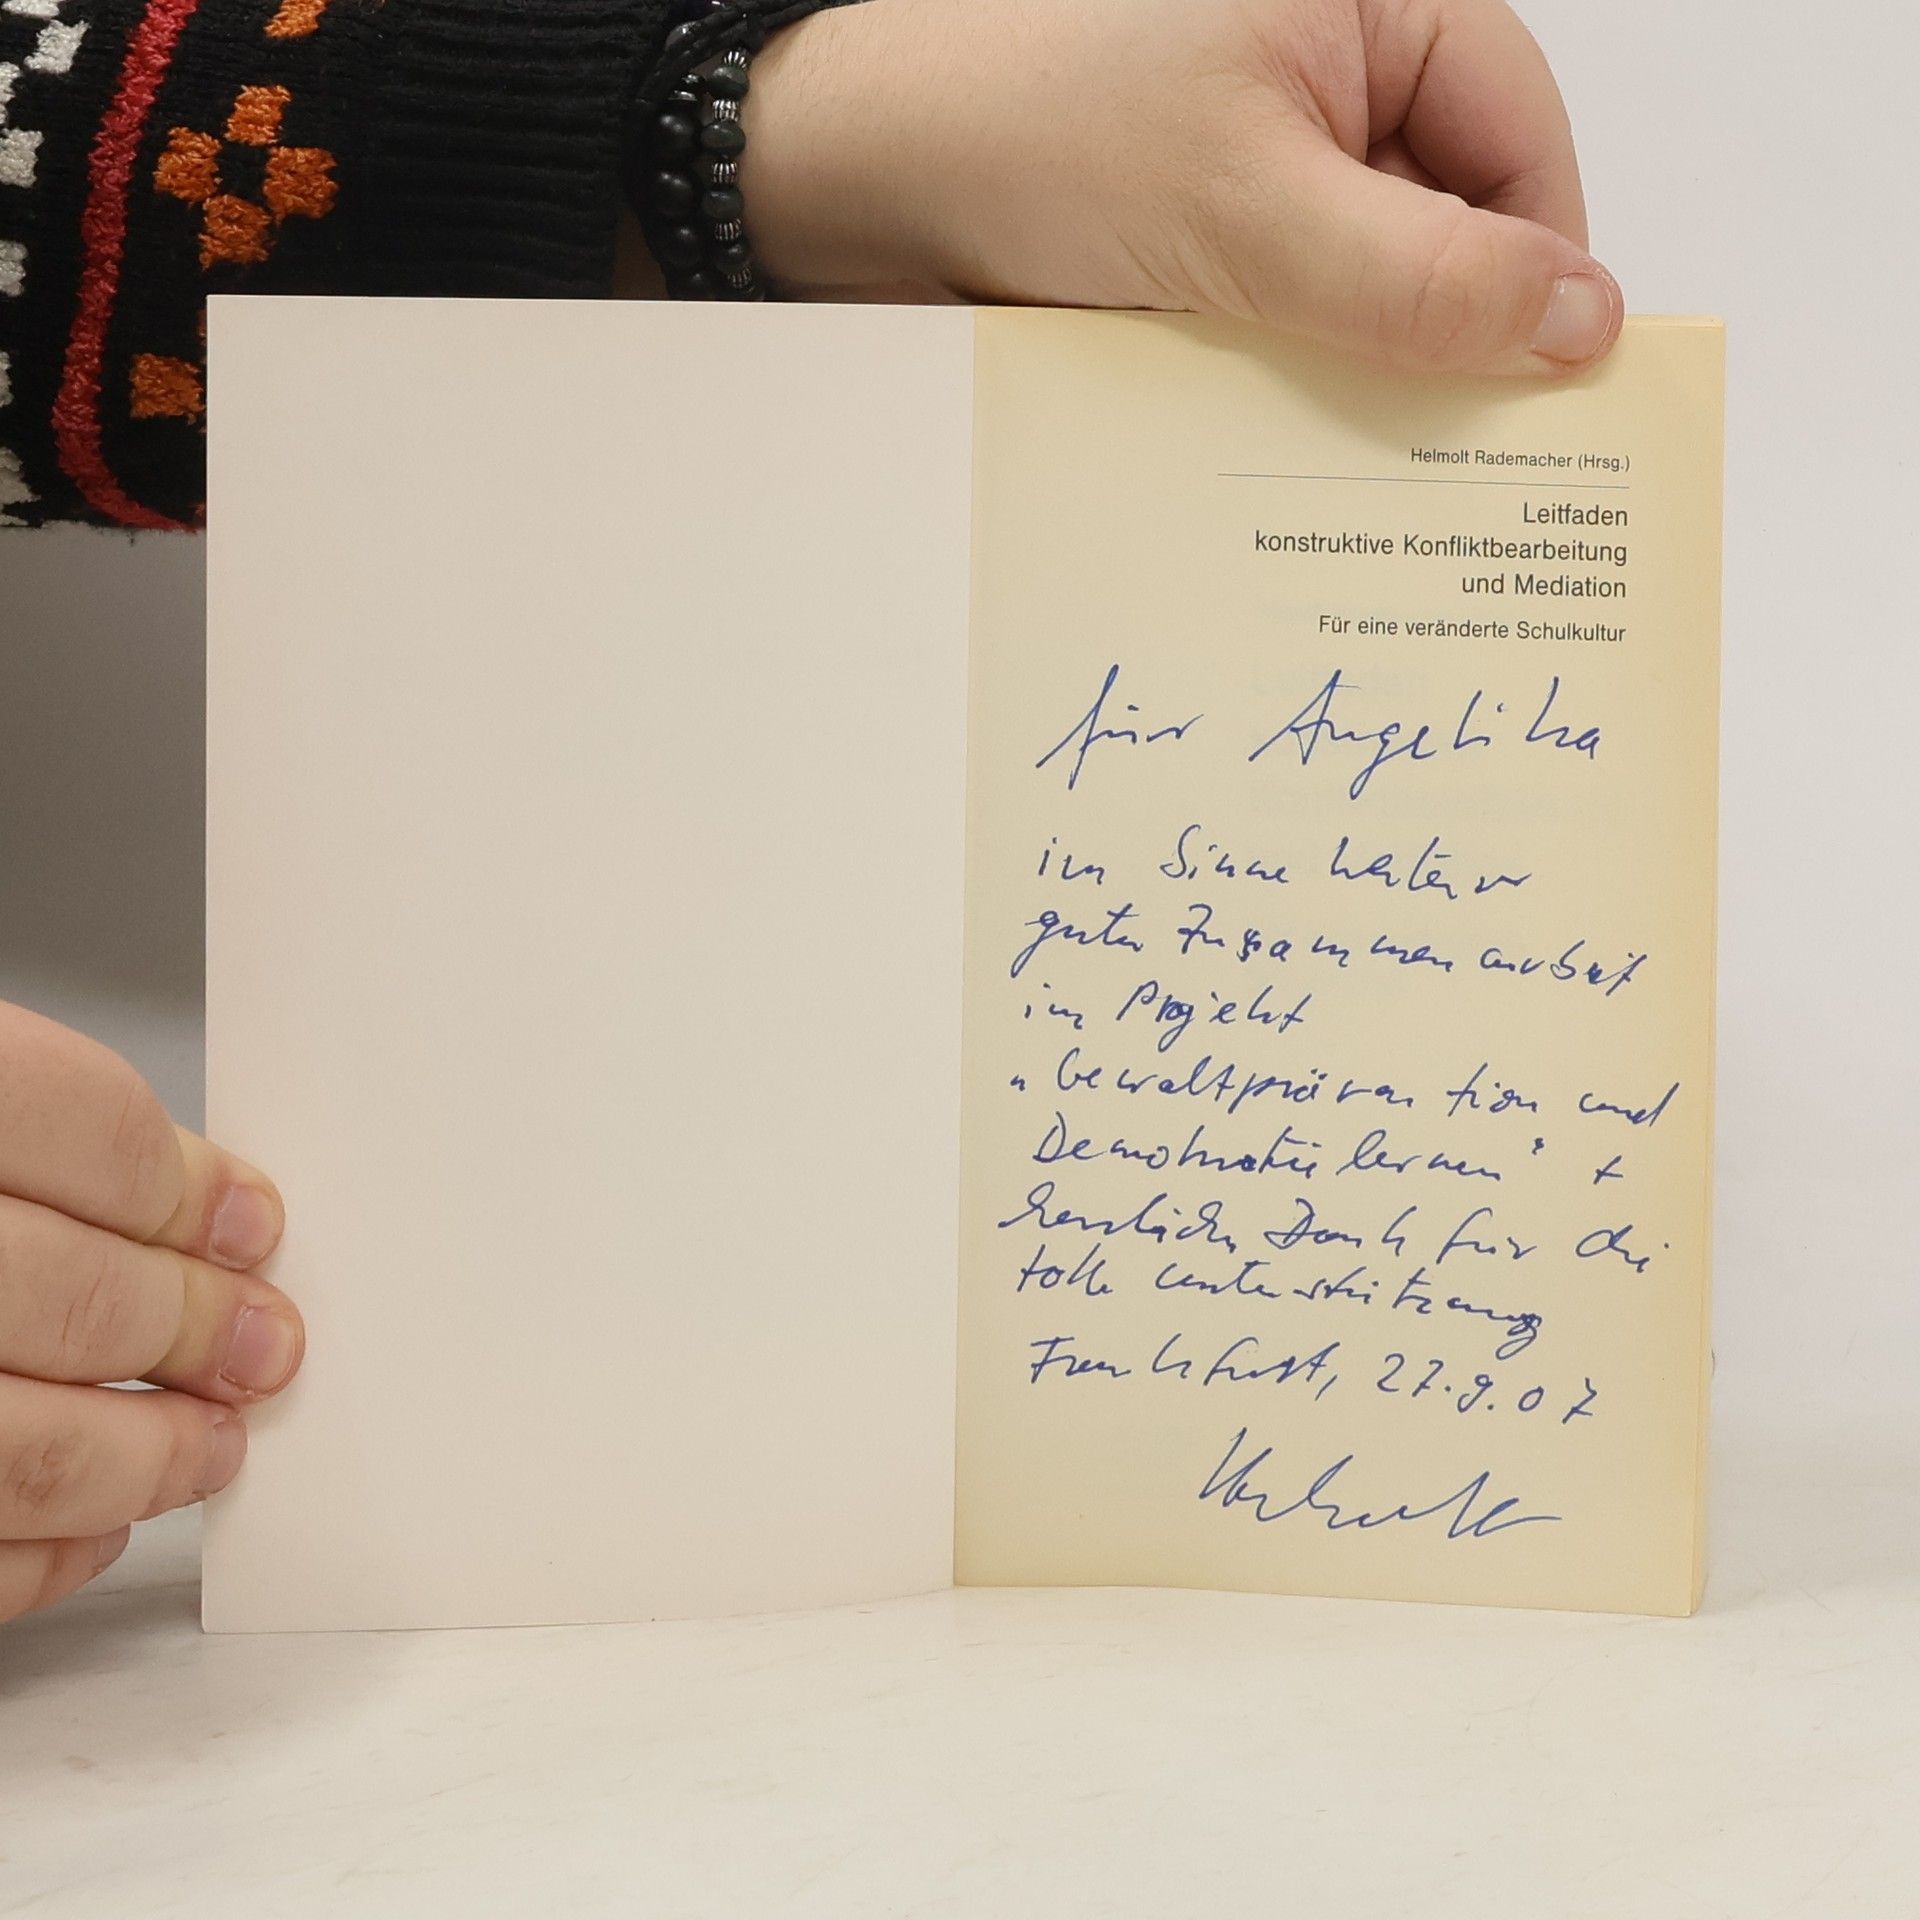 Helmolt Rademacher (Hrsg.)
Leitfaden
konstruktive Konfliktbearbeitung
und Mediation
Für eine veränderte Schulkultur
für Angelika
im Sinne weiterer
guter Zusammenarbeit
im Projekt
„Gewaltprävention und
Demokratielernen" +
herzlichen Dank für die
tolle Unterstützung
Frankfurt, 27.9.07
Helmolt